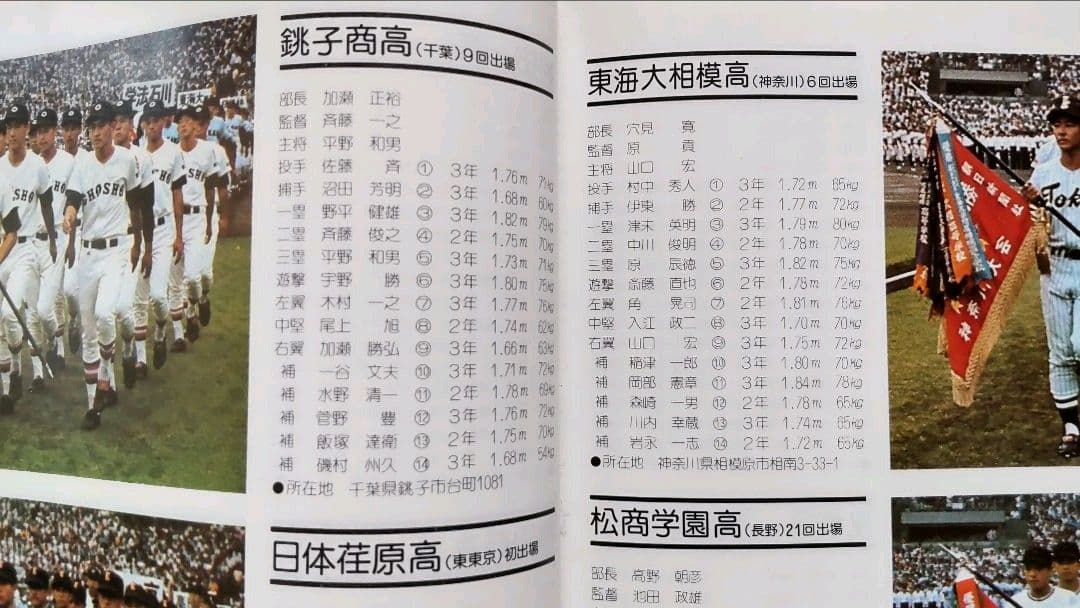 銚子商高(千葉)9回出場
部長 加瀬 正裕
監督 斉藤 一之
主将 平野 和男
投手 佐藤 斉 ① 3年 1.76m 71kg
捕手 沼田 芳明 ② 3年 1.68m 60kg
一塁 野平 健雄 ③ 3年 1.82m 79kg
二塁 斉藤 俊之 ④ 2年 1.75m 70kg
三塁 平野 和男 ⑤ 3年 1.73m 71kg
遊撃 宇野 勝 ⑥ 3年 1.80m 75kg
左翼 木村 一之 ⑦ 3年 1.77m 76kg
中堅 尾上 旭 ⑧ 2年 1.74m 62kg
右翼 加瀬 勝弘 ⑨ 3年 1.66m 63kg
補 一谷 文夫 ⑩ 3年 1.71m 72kg
補 水野 清一 ⑪ 2年 1.78m 69kg
補 菅野 豊 ⑫ 3年 1.76m 72kg
補 飯塚 達衛 ⑬ 2年 1.75m 70kg
補 磯村 州久 ⑭ 3年 1.68m 54kg
●所在地 千葉県銚子市台町1081
日体荏原高(東東京)初出場
東海大相模高(神奈川)6回出場
部長 穴見 寛
監督 原 貢
主将 山口 宏
投手 村中 秀人 ① 3年 1.72m 65kg
捕手 伊東 勝 ② 2年 1.77m 72kg
一塁 津末 英明 ③ 3年 1.79m 80kg
二塁 中川 俊明 ④ 2年 1.78m 70kg
三塁 原 辰徳 ⑤ 3年 1.82m 75kg
遊撃 斎藤 直也 ⑥ 2年 1.78m 72kg
左翼 角 晃司 ⑦ 2年 1.81m 76kg
中堅 入江 政二 ⑧ 3年 1.70m 70kg
右翼 山口 宏 ⑨ 3年 1.75m 72kg
補 稲津 一郎 ⑩ 3年 1.80m 70kg
補 岡部 憲章 ⑪ 3年 1.84m 78kg
補 森崎 一男 ⑫ 2年 1.78m 65kg
補 川内 幸蔵 ⑬ 3年 1.74m 65kg
補 岩永 一志 ⑭ 2年 1.72m 65kg
●所在地 神奈川県相模原市相南3-33-1
松商学園高(長野)21回出場
部長 高野 朝彦
監督 池田 政雄
学法石川
CHOSHO